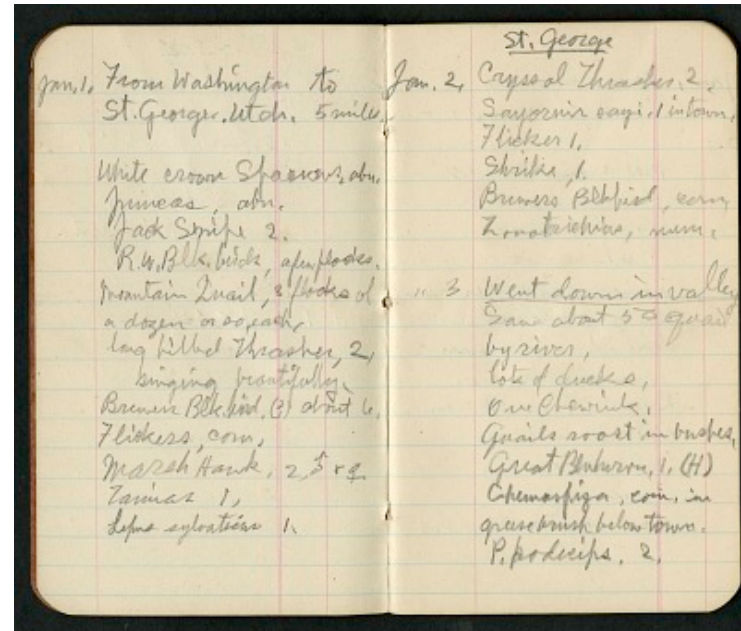 Jan. 1. From Washington to
St. George. Utah. 5 miles.
White crown Sparrows, abu.
Juncos, abu.
Jack Snipe 2.
R.W. Blk. birds, a few flocks.
Mountain Quail, 2 flocks of
a dozen or so, each,
long billed Thrasher, 2,
singing beautifully.
Brewers Blk bird, (?) about 6.
Flickers, com,
Marsh Hawk, 2, ♂ + ♀.
Tamias 1,
Lepus sylvaticus 1.
St. George
Jan. 2, Cryssal Thrasher. 2.
Sayornis sayi, 1 in town,
Flicker 1,
Shrike, 1,
Brewers Blkbird, com,
Zonotrichias, num,
" 3 Went down in valley
Saw about 50 quail
by river,
lots of ducks,
One Chewink,
Quails roost in bushes,
Great Blu heron, 1. (H)
com, in
greasebrush below town.
P. podiceps. 2.